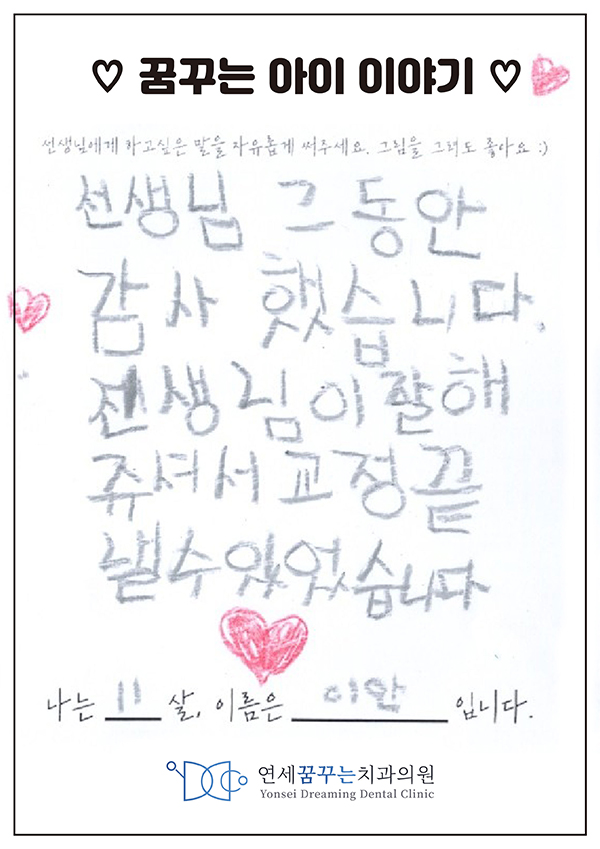 ♡ 꿈꾸는 아이 이야기 ♡
선생님에게 하고싶은 말을 자유롭게 써주세요. 그림을 그려도 좋아요 :)
선생님 그동안
감사 했습니다.
선생님이 잘해
쥬셔서 교정끝
낼수있었습니다
나는 11 살, 이름은 이안 입니다.
연세꿈꾸는치과의원
Yonsei Dreaming Dental Clinic